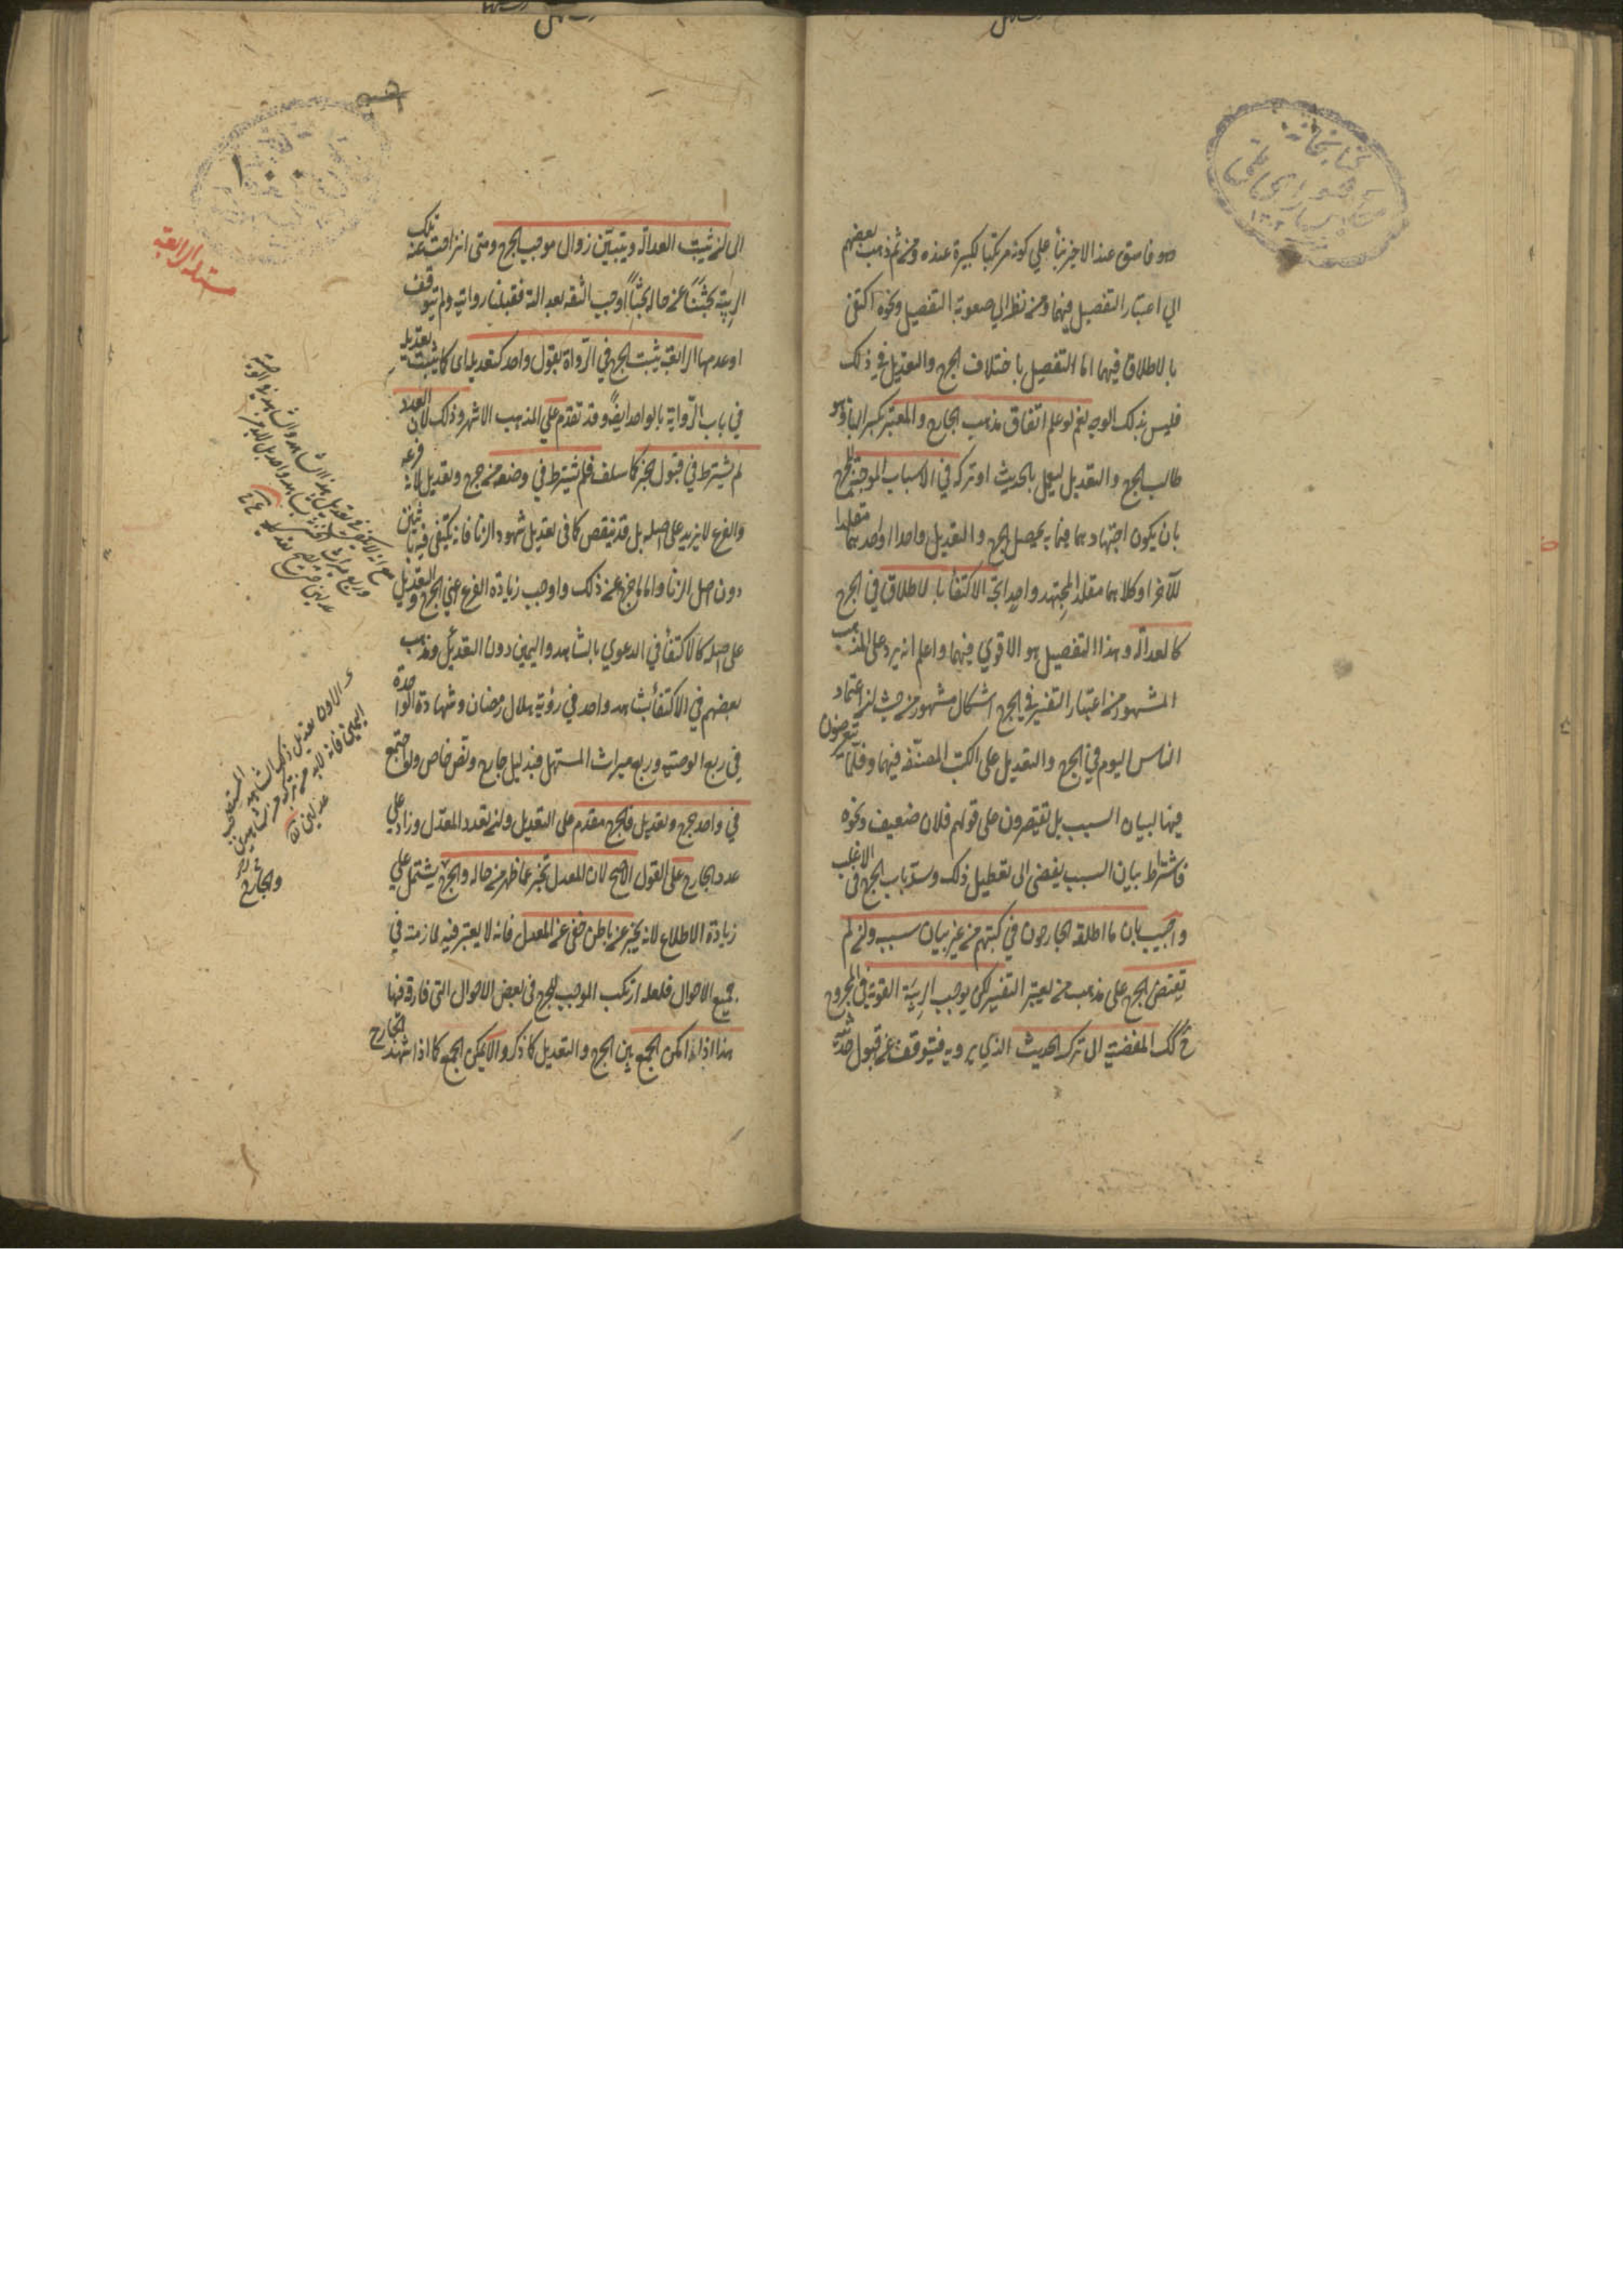 وهو فاسق عند الاخر بناً علي كونه مرتكبا لكبيرة عنده ومن ثم ذهب بعضهم
الي اعتبار التفصيل فيهما ومن نظر الي صعوبة التفصيل ونحوه اكتفى
بالاطلاق فيهما اما التفصيل باختلاف الجرح والتعديل في ذلك
فليس بذلك الوجه نعم لو علم اتفاق مذهب الجارح والمعتبر بكسر الباء وهو
طالب الجرح والتعديل ليعمل بالحديث او تركه في الاسباب الموجبة للجرح
بان يكون اجتهادهما فيما به يحصل الجرح والتعديل واحدا او احدهما مقلدا
للآخر او كلاهما مقلد المجتهد واحد اتجه الاكتفأ بالاطلاق في الجرح
كالعدالة وهذا التفصيل هو الاقوي فيهما واعلم انه يرد على المذهب
المشهور من اعتبار التفسير في الجرح اشكال مشهور من حيث ان اعتماد
الناس اليوم في الجرح والتعديل على الكتب المصنّفه فيهما وقلّما يتعرضون
فيها لبيان السبب بل يقتصرون على قولهم فلان ضعيف ونحوه
فاشتراط بيان السبب يفضى الى تعطيل ذلك وسدّ باب الجرح فى الاغلب
واجيب بان ما اطلقه الجارحون في كتبهم من غير بيان سببه وان لم
يقتض الجرح على مذهب من يعتبر التفسير لكن يوجب الريبة القوية في المجروح
كك المفضية الى ترك الحديث الذي يرويه فيتوقف عن قبول حديثه
الى ان تثبت العدالة ويتبين زوال موجب الجرح ومتى انزاحت عنه تلك
الريبة بحثنا عن حاله بحثاً اوجب الثقه بعدالته فقبلنا روايته ولم نتوقف
او عدمها الرابعة يثبت الجرح في الرواة بقول واحد كتعديله اى كما يثبت تعديله
في باب الرّواية بالواحد ايضاً وقد تقدم علي المذهب الاشهر وذلك لان العدد
لم يشترط في قبول الخبر كما سلف فلم يشترط في وصفه من جرح وتعديل لانه فرعه
والفرع لا يزيد على اصله بل قد ينقص كما فى تعديل شهود الزنا فانه يكتفى فيه باثنين
دون اصل الزنا واما ما خرج عن ذلك واوجب زيادة الفرع اعني الجرح والتعديل
على اصله كالاكتفأ في الدعوي بالشاهد واليمين دون التعديل ومذهب
بعضهم في الاكتفأ بشاهد واحد في رؤية هلال رمضان وشهادة الواحدة
في ربع الوصية وربع ميراث المستهل فبدليل خارج ونص خاص ولو اجتمع
في واحد جرح وتعديل فالجرح مقدم على التعديل وان تعدد المعدّل وزاد علي
عدد الجارح على القول الاصح لان المعدل مخبر عما ظهر من حاله والجرح يشتمل علي
زيادة الاطلاع لانه يخبر عن باطن خفى عن المعدل فانه لا يعتبر فيه ملازمته في
جميع الاحوال فلعله ارتكب الموجب للجرح فى بعض الاحوال التى فارقه فيها
هذا اذا امكن الجمع بين الجرح والتعديل كما ذكر والا يمكن الجمع كما اذا شهد الجارح
مسئلة الرابعة